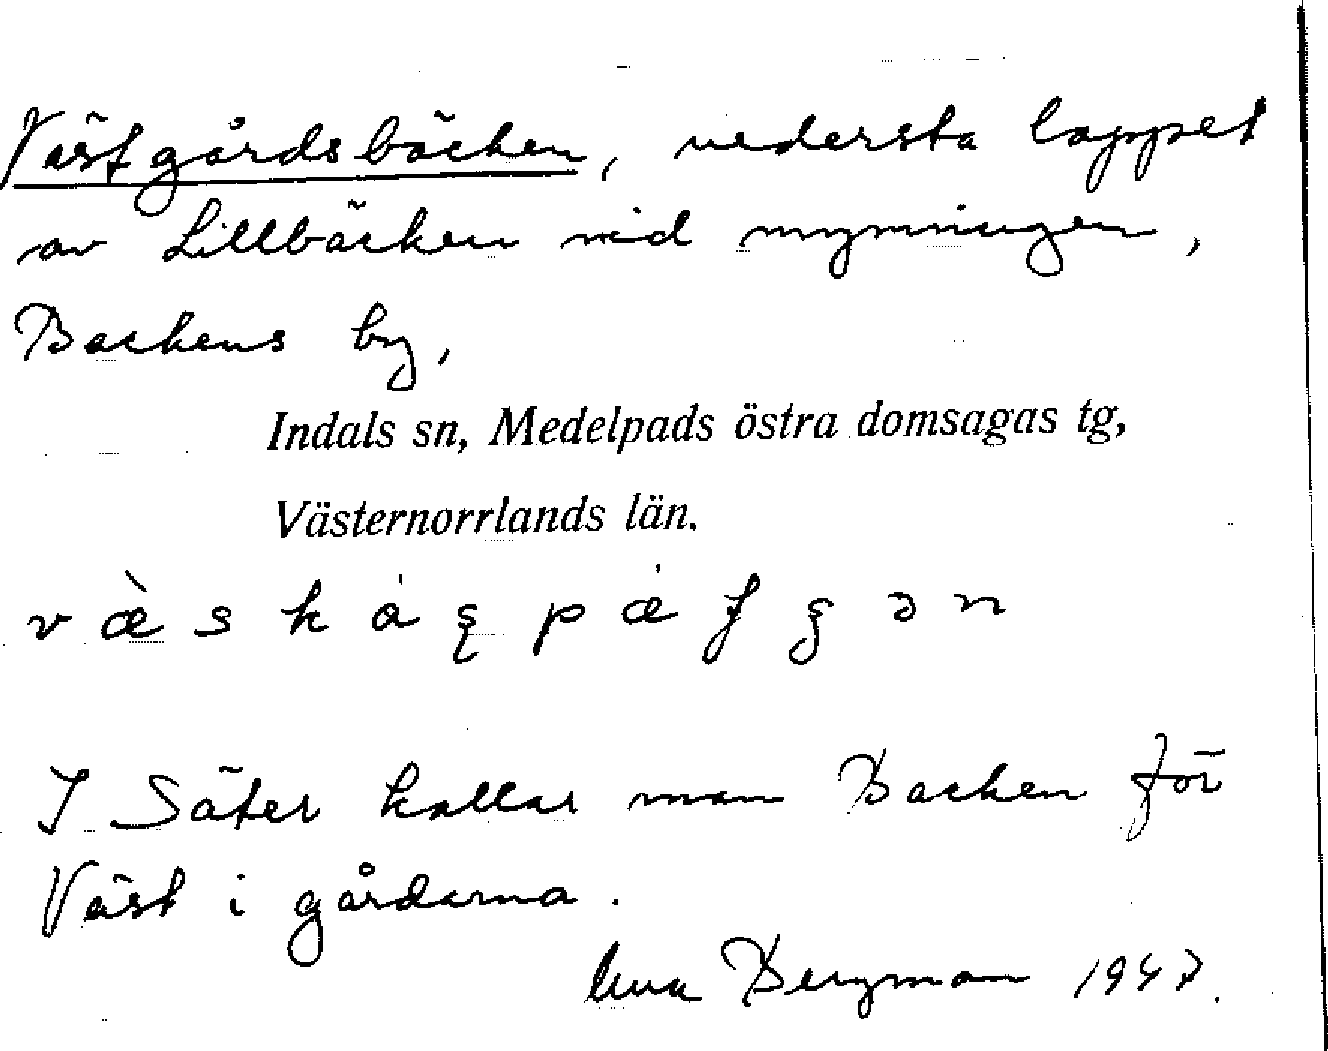 Västgårdsbäcken, nedersta loppet
av Lillbäcken vid mynningen,
Backens by,
Indals sn, Medelpads östra domsagas tg,
Västernorrlands län.
I Säter kallar man Backen för
Väst i gårdarna.
Bergman 1947.